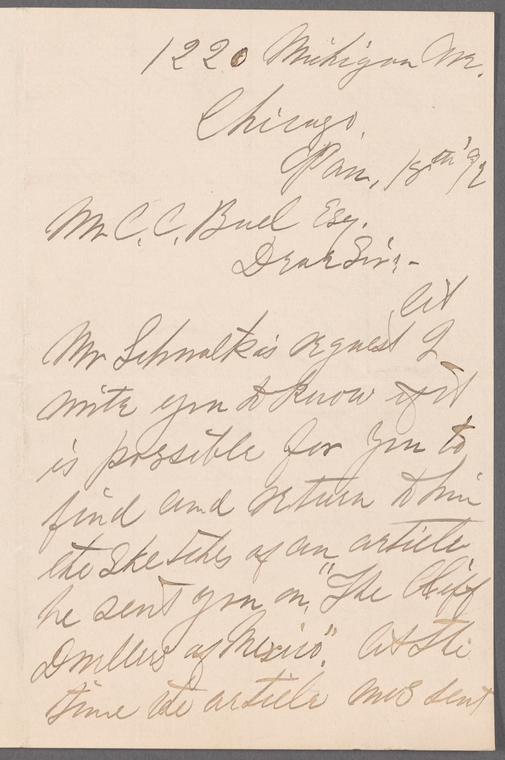 1220 Michigan Ave.
Chicago,
Jan, 18th '92
Mr C. C. Buel Esq.
Dear Sir:-
At
Mr Schwatka's request I
write you to know if it
is possible for you to
find and return to him
the sketches of an article
he sent you on, "The Cliff
Dwellers of Mexico". At the
time the article was sent